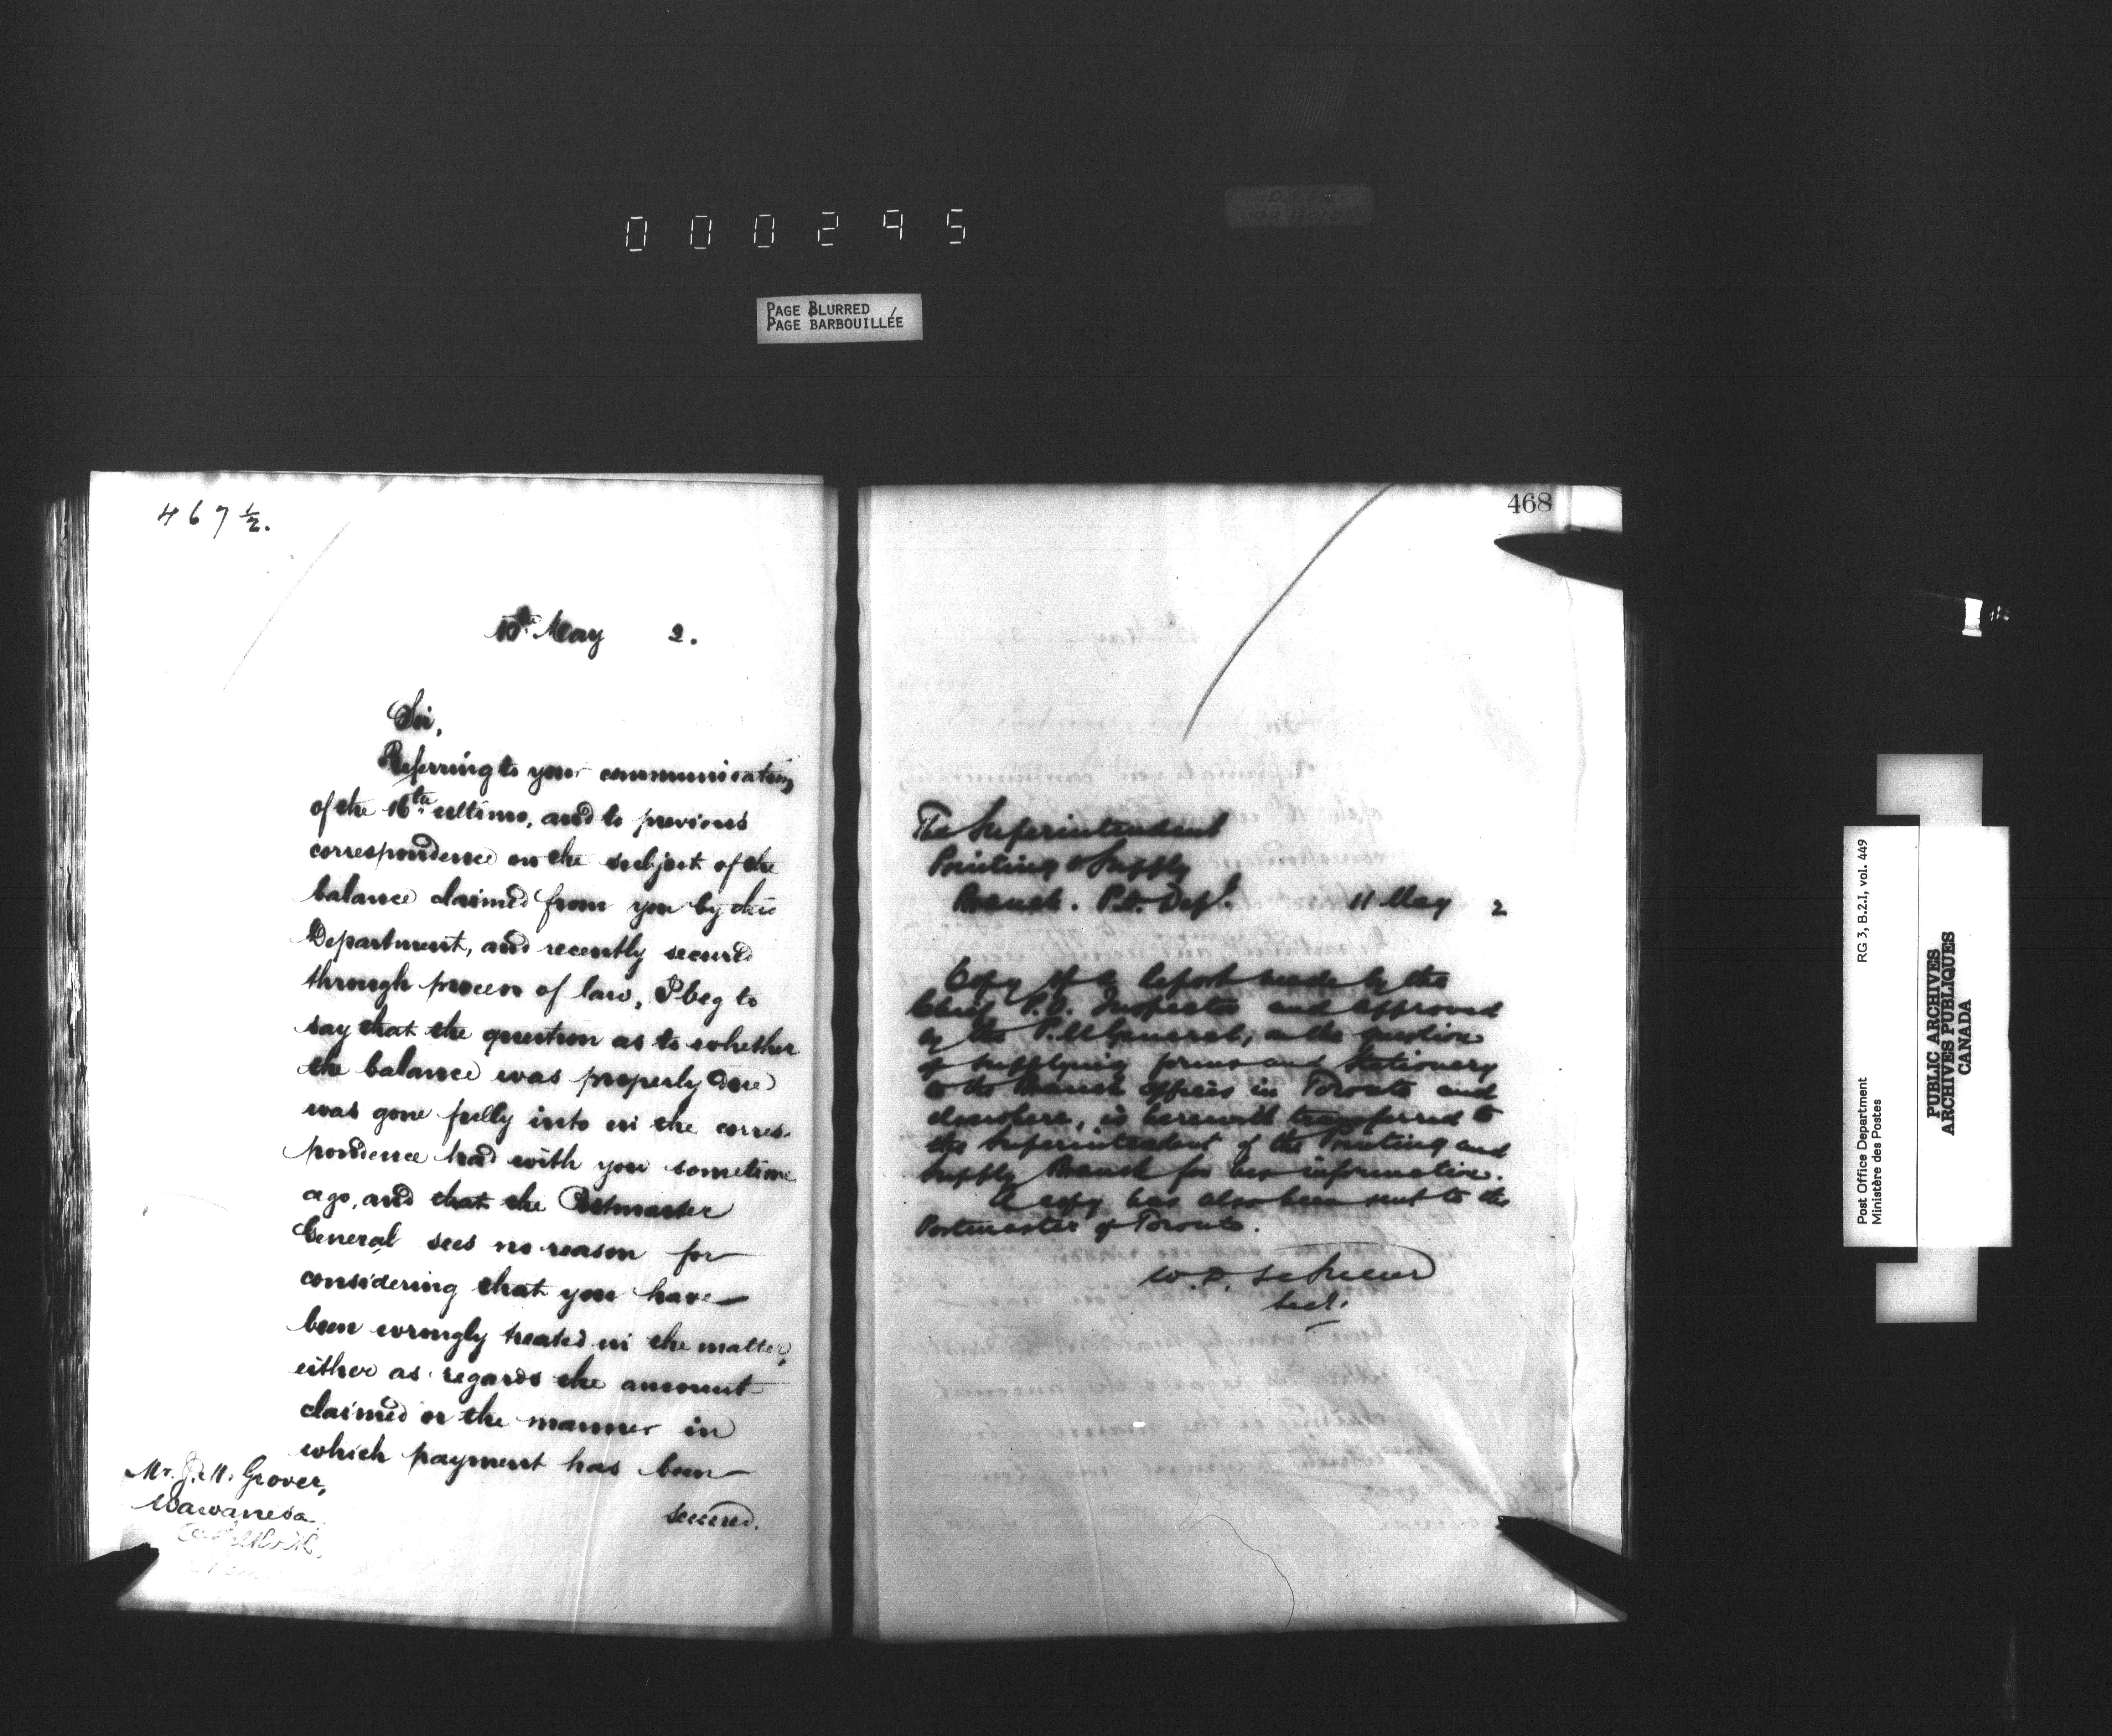 000295
PAGE BLURRED
PAGE BARBOUILLÉE
467½.
10th May 2.
Sir,
Referring to your communication
of the 16th ultimo, and to previous
correspondence on the subject of the
balance claimed from you by this
Department, and recently secured
through process of law, I beg to
say that the question as to whether
the balance was properly due
was gone fully into in the corres-
pondence had with you sometime
ago, and that the Postmaster
General sees no reason for
considering that you have
been wrongly treated in the matter,
either as regards the amount
claimed or the manner in
which payment has been
secured.
Mr. J. H. Grover,
Wawanesa
468
The Superintendent
Printing & Supply
Branch. P.O. Dept. 11 May 2
Copy of a report made by the
Chief P.O. Inspector and approved
by the P.M. General, on the question
of supplying forms and Stationery
to the Branch offices in Toronto and
elsewhere, is herewith transferred to
the Superintendent of the Printing and
Supply Branch for his information.
A copy has also been sent to the
Postmaster of Toronto.
Sect.
RG 3, B.2.I, vol. 449
Post Office Department
Ministère des Postes
PUBLIC ARCHIVES
ARCHIVES PUBLIQUES
CANADA